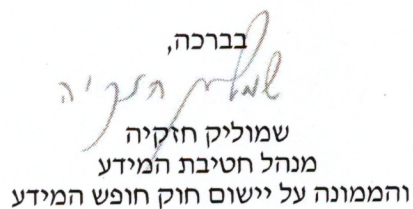 בברכה,
שמוליק חזקיה
שמוליק חזקיה
מנהל חטיבת המידע
והממונה על יישום חוק חופש המידע